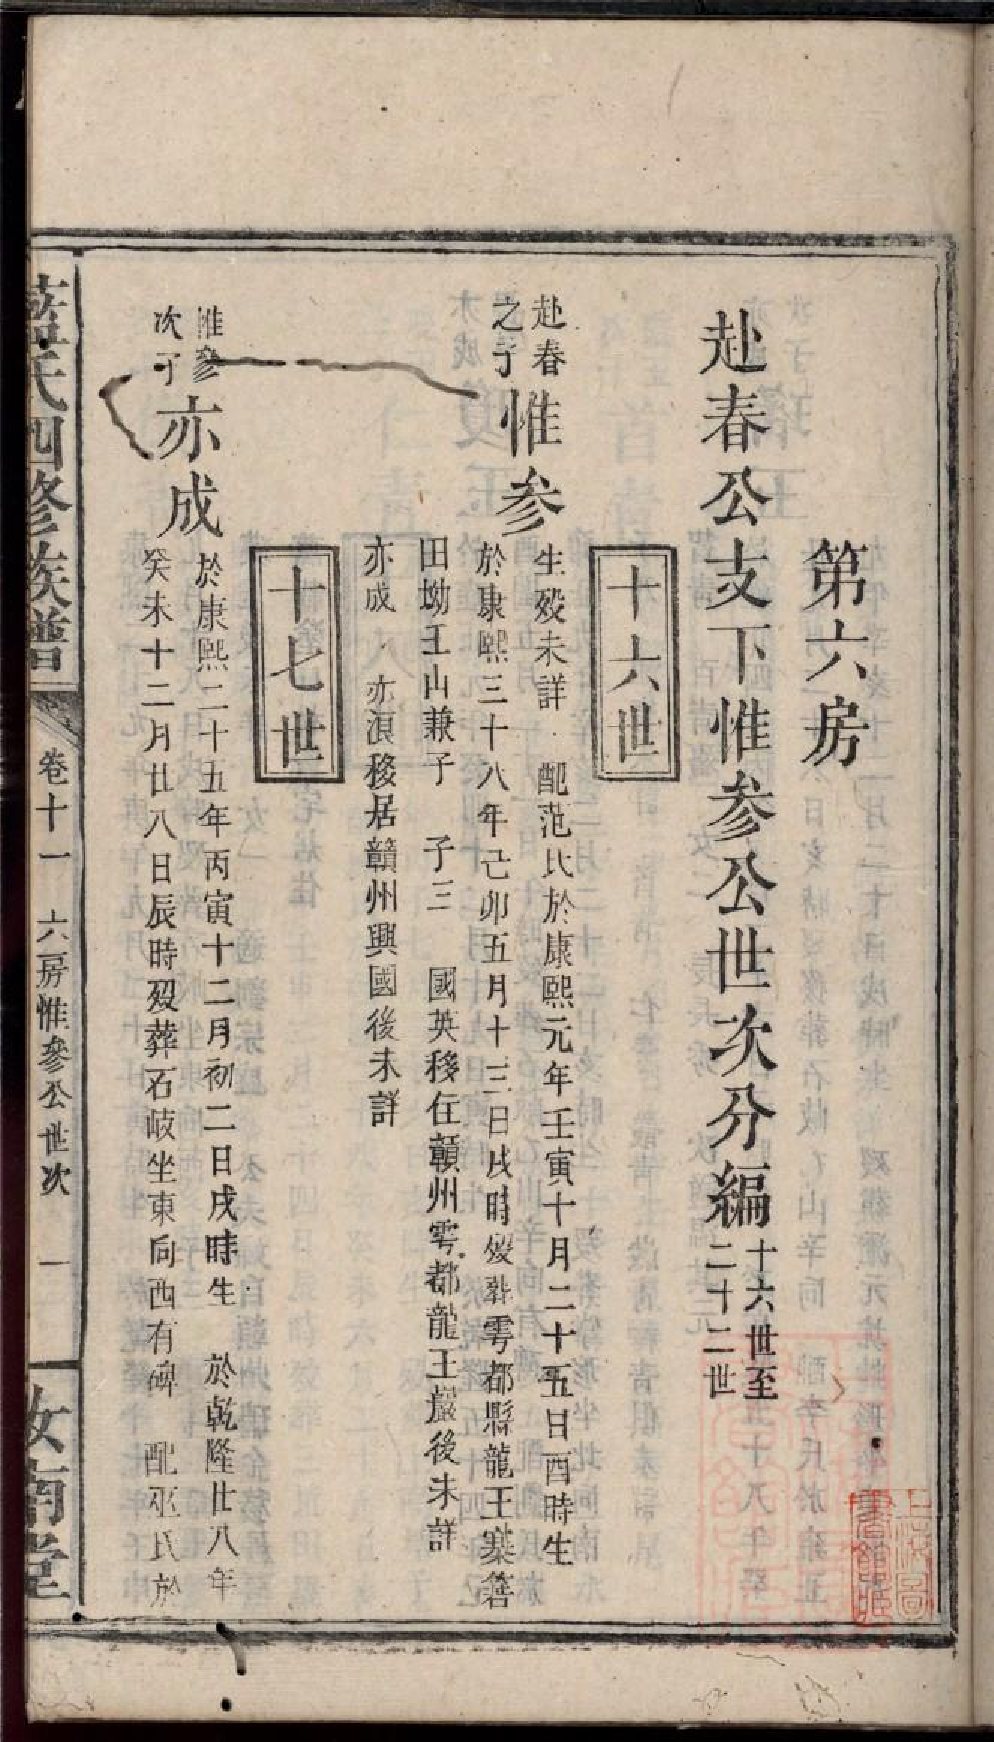 第六房
赴春公支下惟參公世次分編
十六世至
二十二世
十六世
赴春
之子
惟參
生殁未詳 配范氏於康熙元年壬寅十月二十五日酉時生
於康熙三十八年己卯五月十三日戌時殁葬雩都縣龍王寨箬
田坳王山兼子 子三 國英移住贛州雩都龍王巖後未詳
亦成 亦浪移居贛州興國後未詳
十七世
惟參
次子
亦成
於康熙二十五年丙寅十二月初二日戌時生 於乾隆廿八年
癸未十二月廿八日辰時殁葬石岐坐東向西有碑 配巫氏於
藍氏四修族譜 卷十一 六房惟參公世次 一 汝南堂
上海圖
書館藏